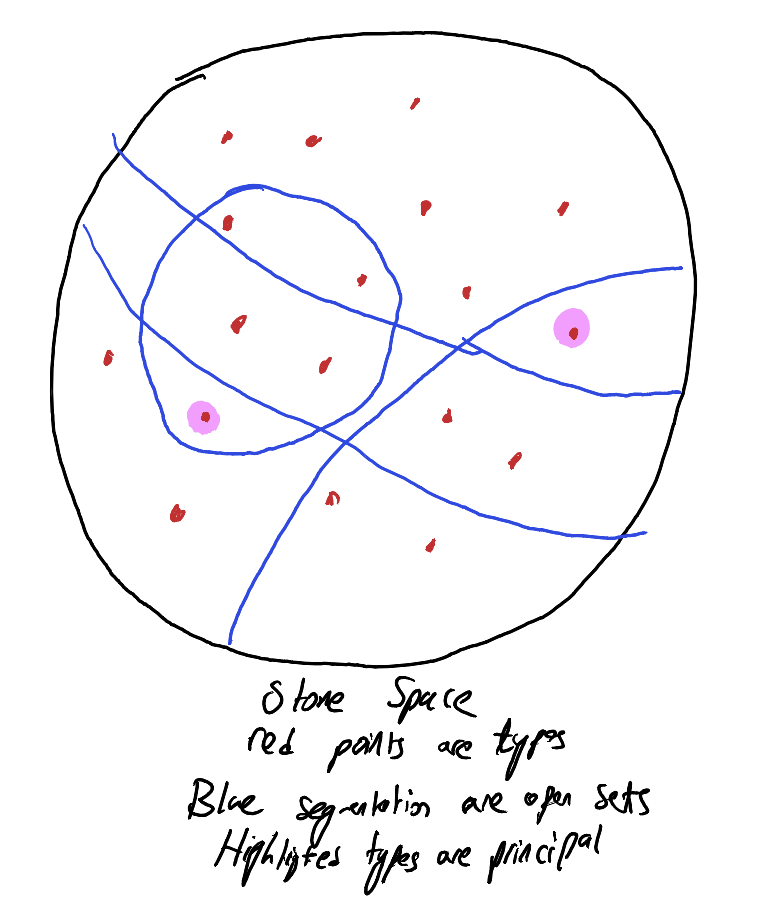 Stone Space
red points are types
Blue segmentation are open sets
Highligted types are principal